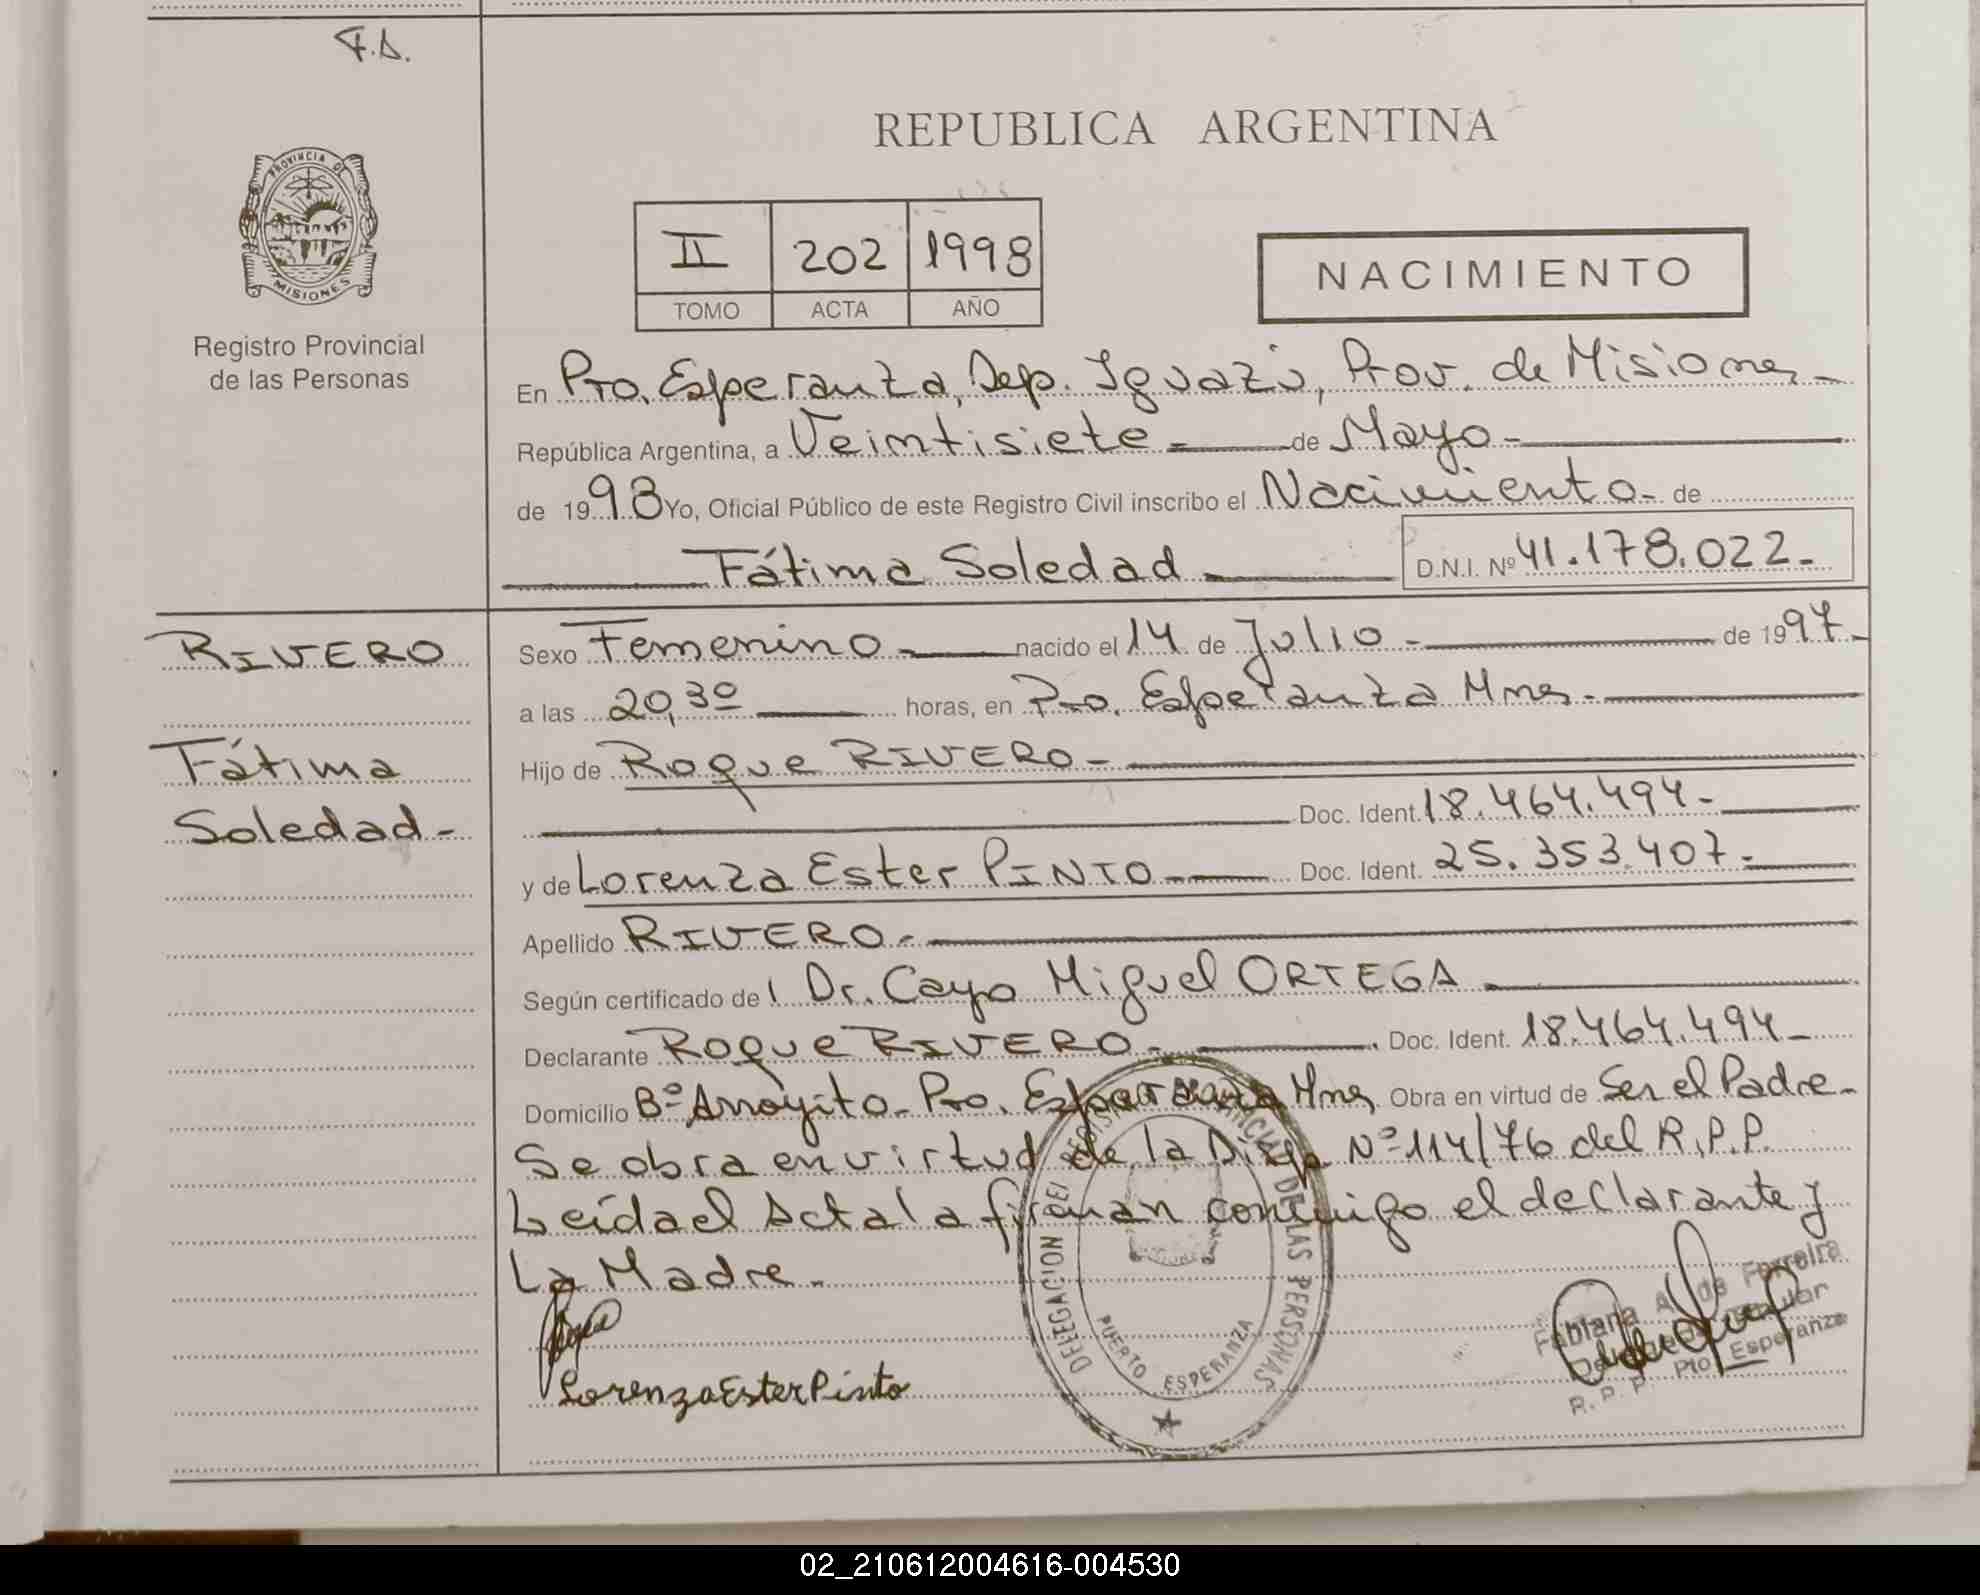 F.D.
PROVINCIA DE
MISIONES
Registro Provincial
de las Personas
REPUBLICA ARGENTINA
II 202 1998
TOMO ACTA AÑO
NACIMIENTO
En Pto. Esperanza, Dep. Iguazú, Prov. de Misiones-
República Argentina, a Veintisiete - de Mayo -
de 1998 Yo, Oficial Público de este Registro Civil inscribo el Nacimiento - de
Fátima Soledad - D.N.I. Nº 41.178.022-
RIVERO
Fátima
Soledad-
Sexo Femenino - nacido el 14 de Julio - de 1997-
a las 20,30 horas, en Pto. Esperanza Mnes-
Hijo de Roque RIVERO -
Doc. Ident. 18.464.494-
y de Lorenza Ester PINTO - Doc. Ident. 25.353.407-
Apellido RIVERO -
Según certificado de l Dr. Cayo Miguel ORTEGA
Declarante Roque RIVERO - Doc. Ident. 18.464.494-
Domicilio Bº Arroyito- Pto. Esperanza Mnes Obra en virtud de Ser el Padre-
Se obra en virtud de la Disp. Nº 114/76 del R.P.P.
Leída el Acta la firman conmigo el declarante y
La Madre -
Lorenza Ester Pinto
DELEGACION DEL REGISTRO PROVINCIAL DE LAS PERSONAS
PUERTO ESPERANZA
Fabiana A. de Ferreira
R. P. P. Pto. Esperanza
02_210612004616-004530